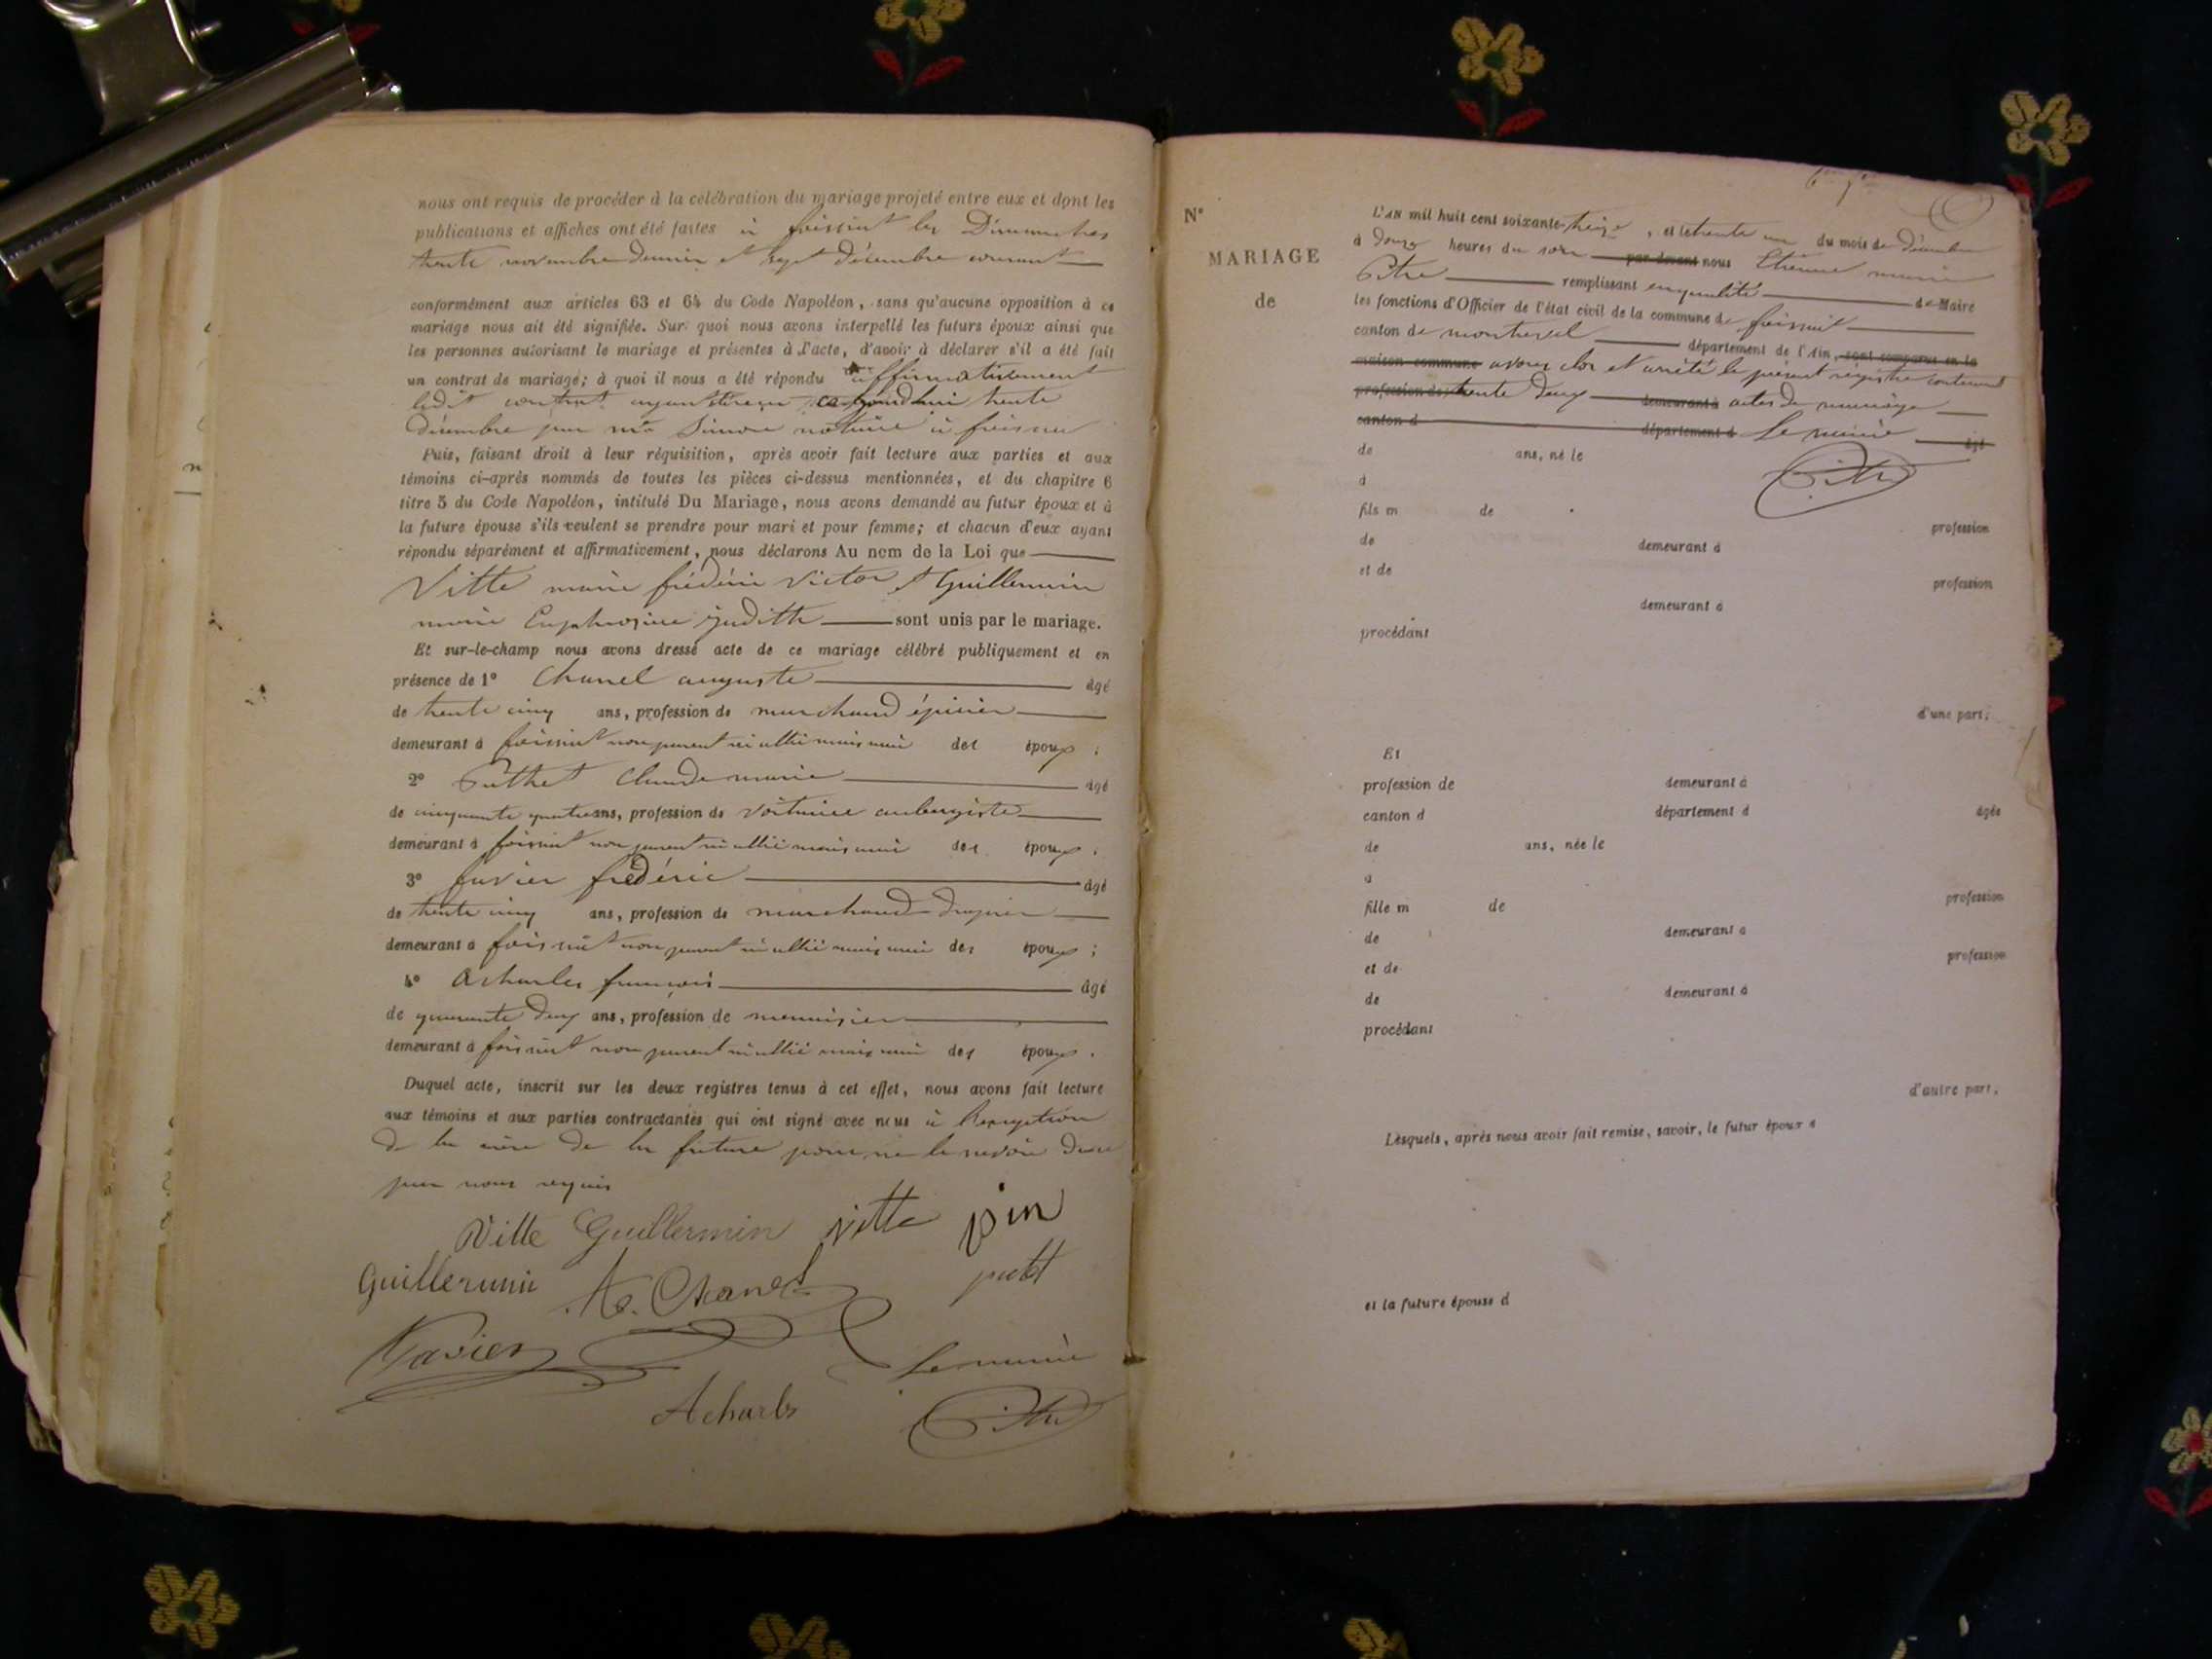 nous ont requis de procéder à la célébration du mariage projeté entre eux et dont les
publications et affiches ont été faites à foissiat les Dimanches
trente novembre dernier et sept décembre courant
conformément aux articles 63 et 64 du Code Napoléon, sans qu'aucune opposition à ce
mariage nous ait été signifiée. Sur quoi nous avons interpellé les futurs époux ainsi que
les personnes autorisant le mariage et présentes à l'acte, d'avoir à déclarer s'il a été fait
un contrat de mariage; à quoi il nous a été répondu affirmativement
ledit contrat ayant été reçu ce jourd'hui trente
décembre par me Simon notaire à foissiat
Puis, faisant droit à leur réquisition, après avoir fait lecture aux parties et aux
témoins ci-après nommés de toutes les pièces ci-dessus mentionnées, et du chapitre 6
titre 5 du Code Napoléon, intitulé Du Mariage, nous avons demandé au futur époux et à
la future épouse s'ils veulent se prendre pour mari et pour femme; et chacun d'eux ayant
répondu séparément et affirmativement, nous déclarons Au nom de la Loi que
Vitte marie frédéric Victor et Guillermin
marie Euphrosine Juditte sont unis par le mariage.
Et sur-le-champ nous avons dressé acte de ce mariage célébré publiquement et en
présence de 1° Chanel auguste âgé
de trente cinq ans, profession de marchand épicier
demeurant à foissiat non parent ni allié mais ami des époux ;
2° Puthet Claude marie âgé
de cinquante quatre ans, profession de voiturier aubergiste
demeurant à foissiat non parent ni allié mais ami des époux .
3° favier frédéric âgé
de trente cinq ans, profession de marchand drapier
demeurant à foissiat non parent ni allié mais ami des époux ;
4° Acharles françois âgé
de quarante deux ans, profession de menuisier
demeurant à foissiat non parent ni allié mais ami des époux .
Duquel acte, inscrit sur les deux registres tenus à cet effet, nous avons fait lecture
aux témoins et aux parties contractantes qui ont signé avec nous à l'exception
de la mère de la future pour ne le savoir de ce
par nous requis
Vitte Guillermin vitte pin
Guillermin A. Chanel putet
Favier Le maire
Acharles Pitre
N°
MARIAGE
de
L'AN mil huit cent soixante-treize, et le trente un du mois de Décembre
à Douze heures du soir par-devant nous Etienne marie
Pitre remplissant en qualité de Maire
les fonctions d'Officier de l'état civil de la commune de foissiat
canton de montrevel département de l'Ain, sont comparus en la
maison commune avons clos et arrêté le présent registre contenant
profession de trente Deux demeurant à actes de mariage
canton d département d Le maire âgé
de ans, né le
à Pitre
fils m de
profession
de demeurant à
et de
profession
demeurant à
procédant
d'une part;
Et
profession de demeurant à
canton d département d âgée
de ans, née le
à
fille m de profession
de demeurant à
et de profession
de demeurant à
procédant
d'autre part,
Lesquels, après nous avoir fait remise, savoir, le futur époux d
et la future épouse d